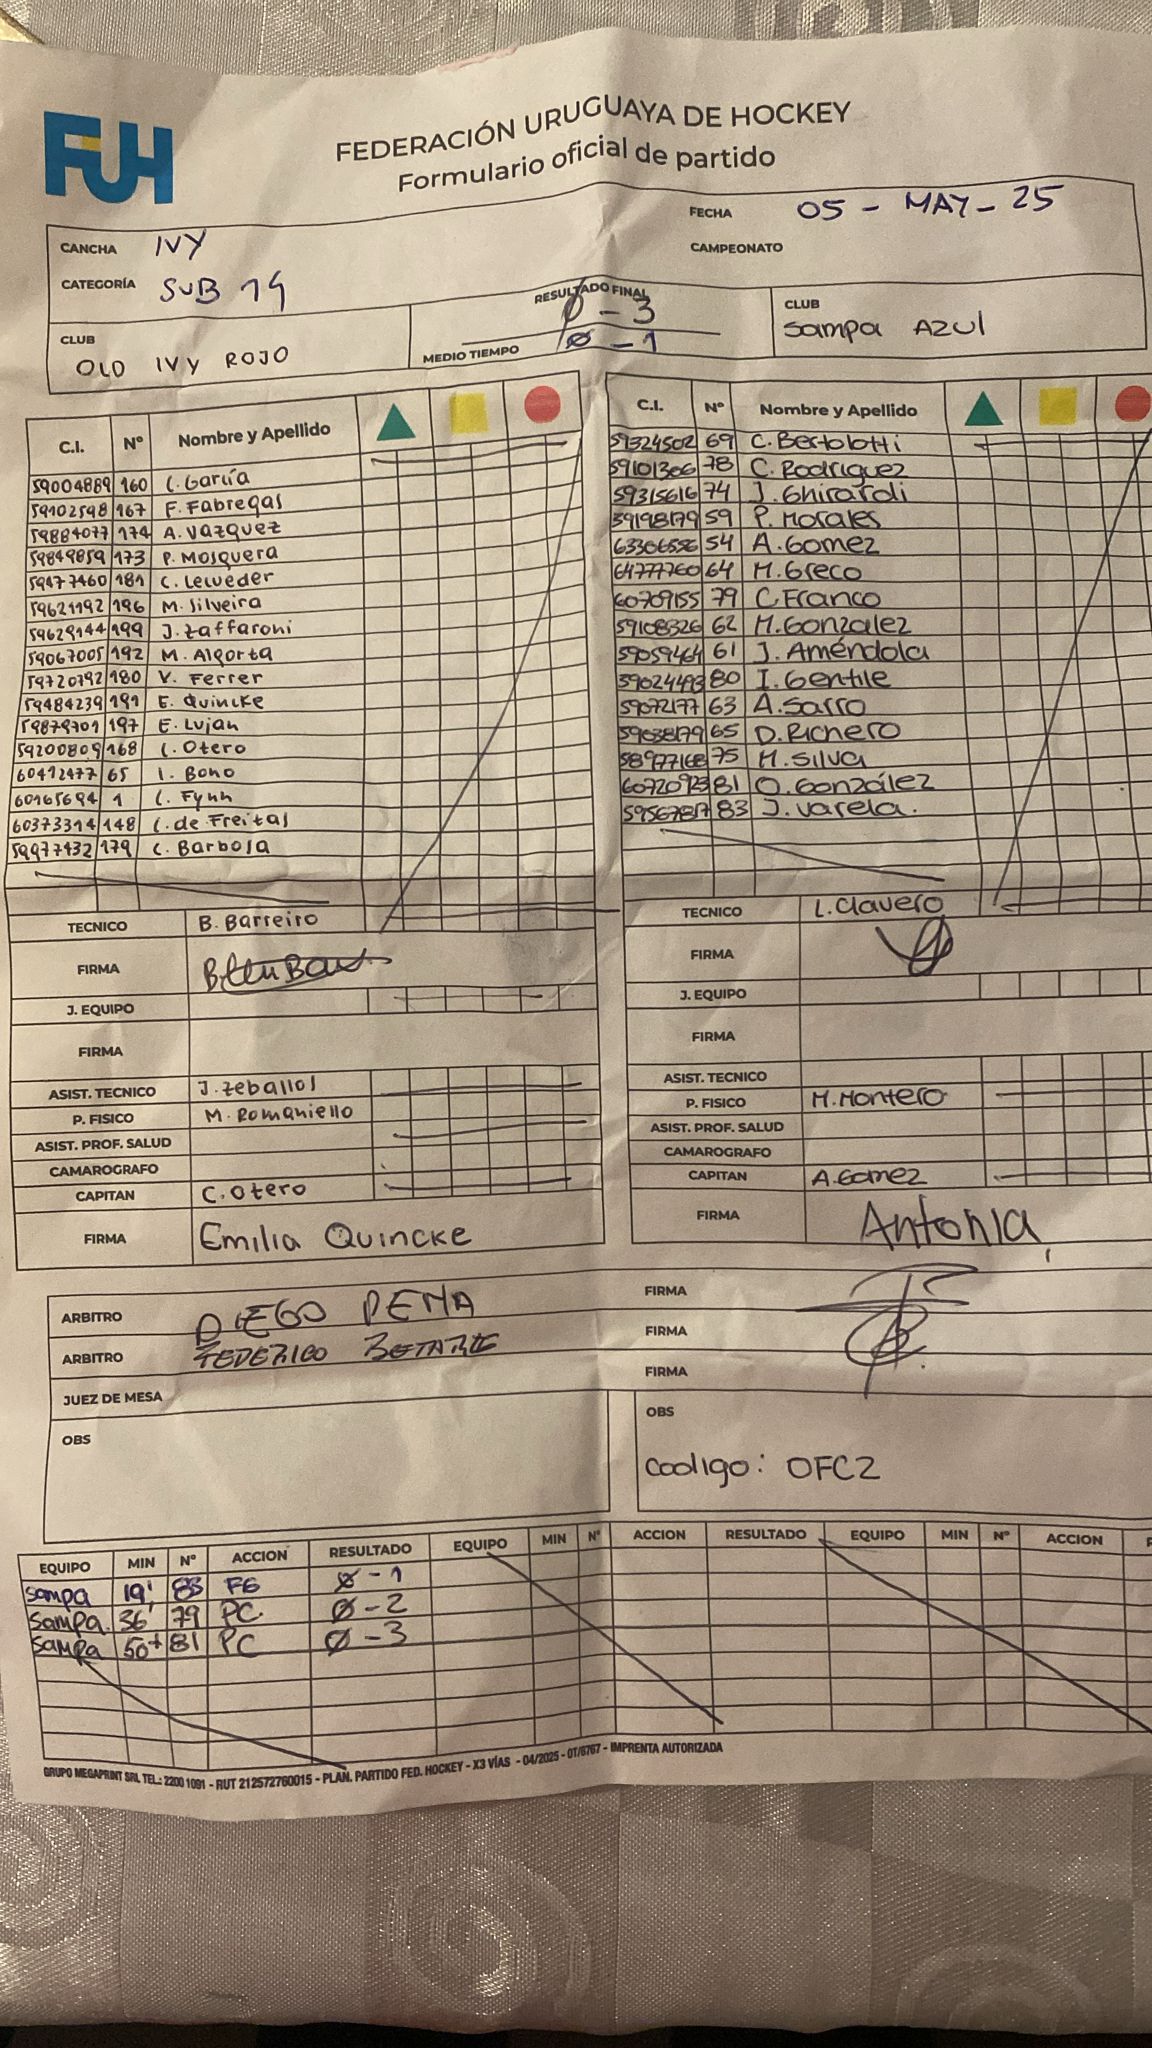 FUH
FEDERACIÓN URUGUAYA DE HOCKEY
Formulario oficial de partido
CANCHA IVY
FECHA 05 - MAY - 25
CATEGORÍA SUB 14
CAMPEONATO
CLUB OLD IVY ROJO
RESULTADO FINAL Ø - 3
MEDIO TIEMPO Ø - 1
CLUB Sampa AZUL
C.I. Nº Nombre y Apellido
59004889 160 C. García
59102598 167 F. Fabregas
59884077 174 A. Vazquez
59849859 173 P. Mosquera
59477460 181 C. Lecueder
59621192 196 M. Silveira
59629144 199 J. Zaffaroni
59067005 192 M. Algorta
59720792 180 V. Ferrer
59484239 191 E. Quincke
59879701 197 E. Lujan
59200809 168 C. Otero
60412477 65 I. Bono
60165694 1 C. Fynn
60373314 148 C. de Freitas
59977432 179 C. Barbosa
TECNICO B. Barreiro
FIRMA
J. EQUIPO
FIRMA
ASIST. TECNICO J. Zeballos
P. FISICO M. Romaniello
ASIST. PROF. SALUD
CAMAROGRAFO
CAPITAN C. Otero
FIRMA Emilia Quincke
C.I. Nº Nombre y Apellido
59324502 69 C. Bertolotti
59101306 78 C. Rodriguez
59315616 74 J. Ghirardi
59198179 59 P. Morales
63306556 54 A. Gomez
64777760 64 M. Greco
60709155 79 C. Franco
59108326 62 M. Gonzalez
59059464 61 J. Améndola
59024493 80 I. Gentile
59072177 63 A. Sarro
59038179 65 D. Richero
58977168 75 M. Silva
60720923 81 O. González
59567817 83 J. Varela.
TECNICO L. Clavero
FIRMA
J. EQUIPO
FIRMA
ASIST. TECNICO
P. FISICO M. Montero
ASIST. PROF. SALUD
CAMAROGRAFO
CAPITAN A. Gomez
FIRMA Antonia
ARBITRO DIEGO PEÑA FIRMA
ARBITRO FEDERICO FIRMA
JUEZ DE MESA FIRMA
OBS
OBS
Codigo: OFC2
EQUIPO MIN Nº ACCION RESULTADO EQUIPO MIN Nº ACCION RESULTADO EQUIPO MIN Nº ACCION
Sampa 19' 83 FG Ø - 1
Sampa. 36' 79 PC Ø - 2
Sampa 50+ 81 PC Ø - 3
GRUPO MEGAPRINT SRL TEL.: 2200 1091 - RUT 212572760015 - PLAN. PARTIDO FED. HOCKEY - X3 VÍAS - 04/2025 - OT/6767 - IMPRENTA AUTORIZADA